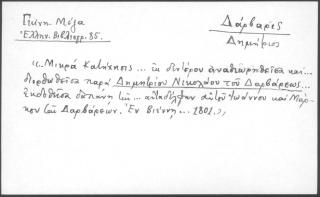 Γκίνη Μέξα
Ἑλλην. Βιβλιογρ. 85.
Δάρβαρις
Δημήτριος
«... Μικρὰ Κατήχησις... ἐκ δευτέρου ἀναθεωρηθεῖσα καὶ...
διορθωθεῖσα παρὰ Δημητρίου Νικολάου τοῦ Δαρβάρεως...
Ἐκδοθεῖσα δαπάνῃ τῶν ... αὐταδέλφων αὐτοῦ Ἰωάννου καὶ Μάρ-
κου τῶν Δαρβάρεων. Ἐν Βιέννῃ... 1801.»,